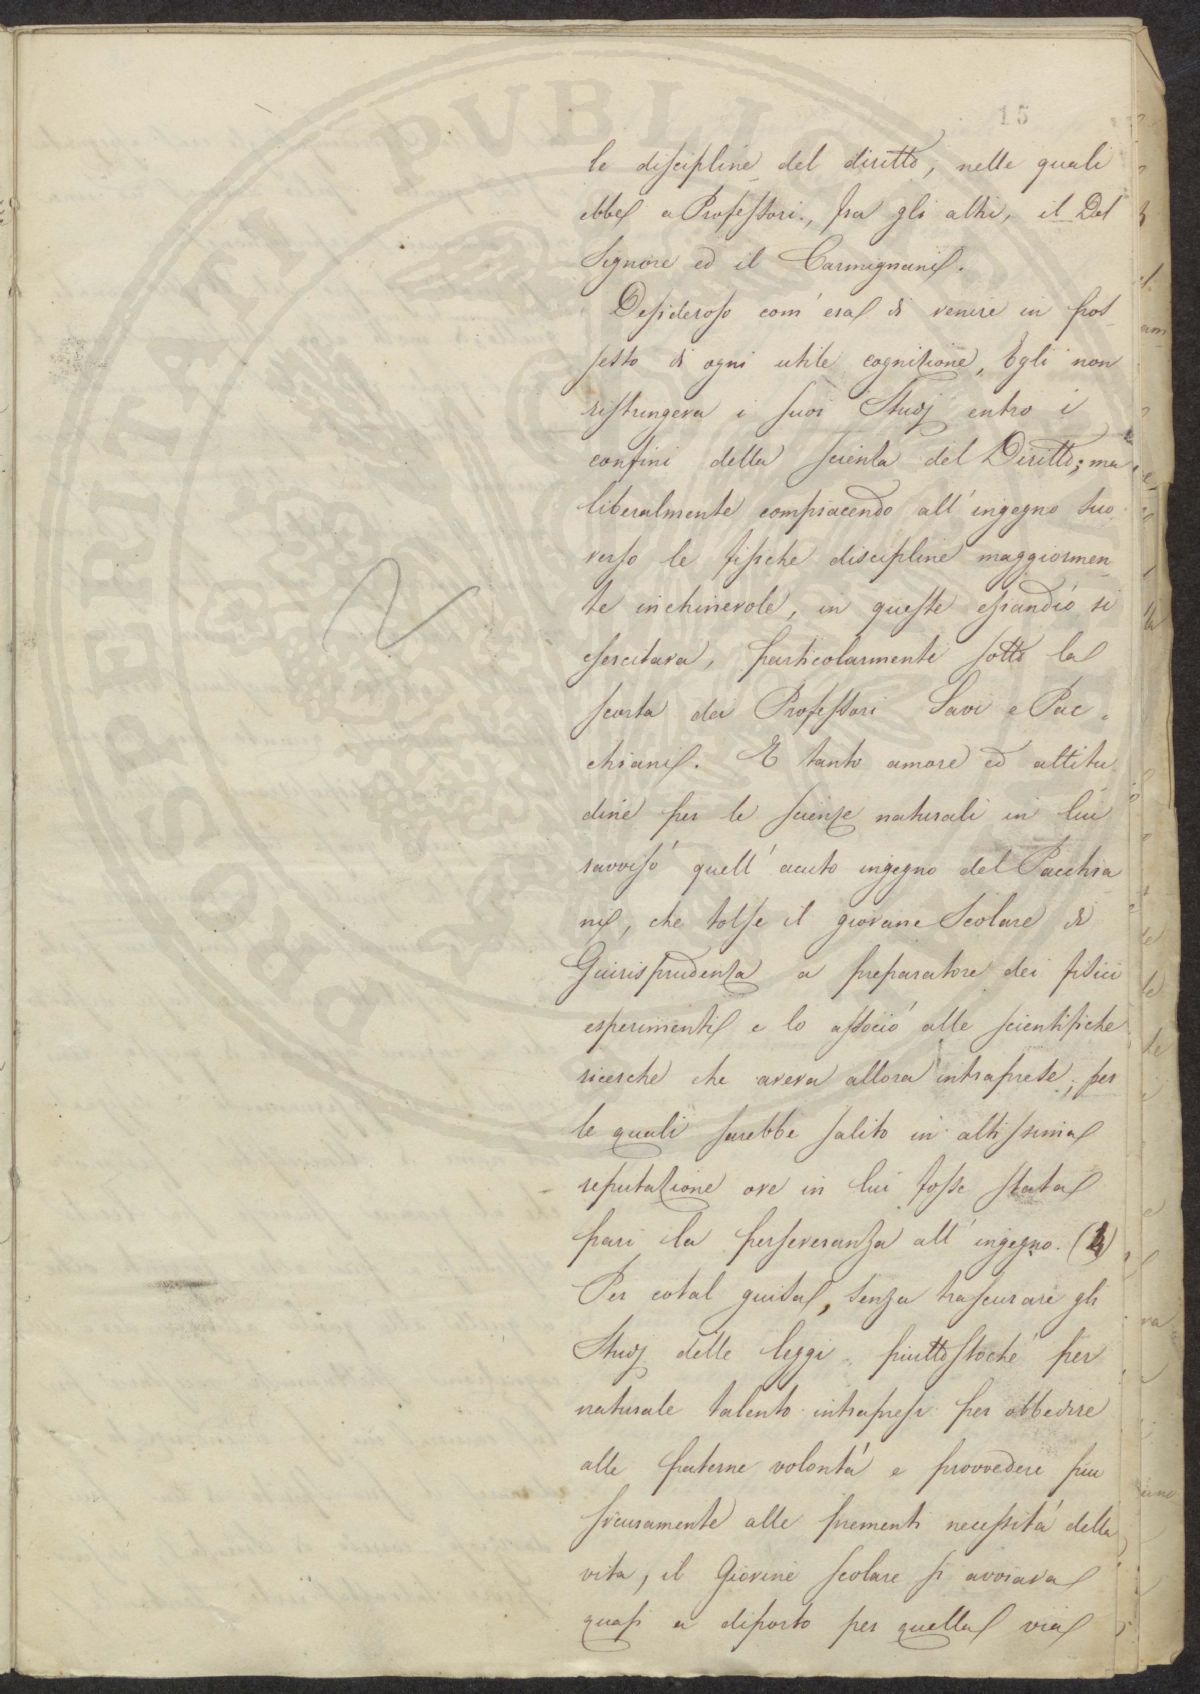 15
le discipline del diritto, nelle quali
ebbe a Professori, fra gli altri, il Del
Signore ed il Carmignani.
Desideroso com'era di venire in pos-
sesso di ogni utile cognizione, Egli non
ristringeva i suoi Studj entro i
confini della scienza del Diritto; ma
liberalmente compiacendo all'ingegno suo
verso le fisiche discipline maggiormen-
te inchinevole, in queste eziandio si
esercitava, particolarmente sotto la
scorta dei Professori Savi e Pac-
chiani. E tanto amore ed attitu-
dine per le scienze naturali in lui
ravvisò quell'acuto ingegno del Pacchia
ni, che tolse il giovane Scolare di
Guirisprudenza a preparatore dei fisici
esperimenti e lo associò alle scientifiche
ricerche che aveva allora intraprese, per
le quali sarebbe salito in altissima
reputazione ove in lui fosse stata
pari la perseveranza all'ingegno. (1)
Per cotal guisa, senza trascurare gli
Studj delle leggi, piuttostochè per
naturale talento intrapresi per obbedire
alle paterne volontà e provvedere più
sicuramente alle prementi necessità della
vita, il Giovine scolare si avviava
quasi a diporto per quella via